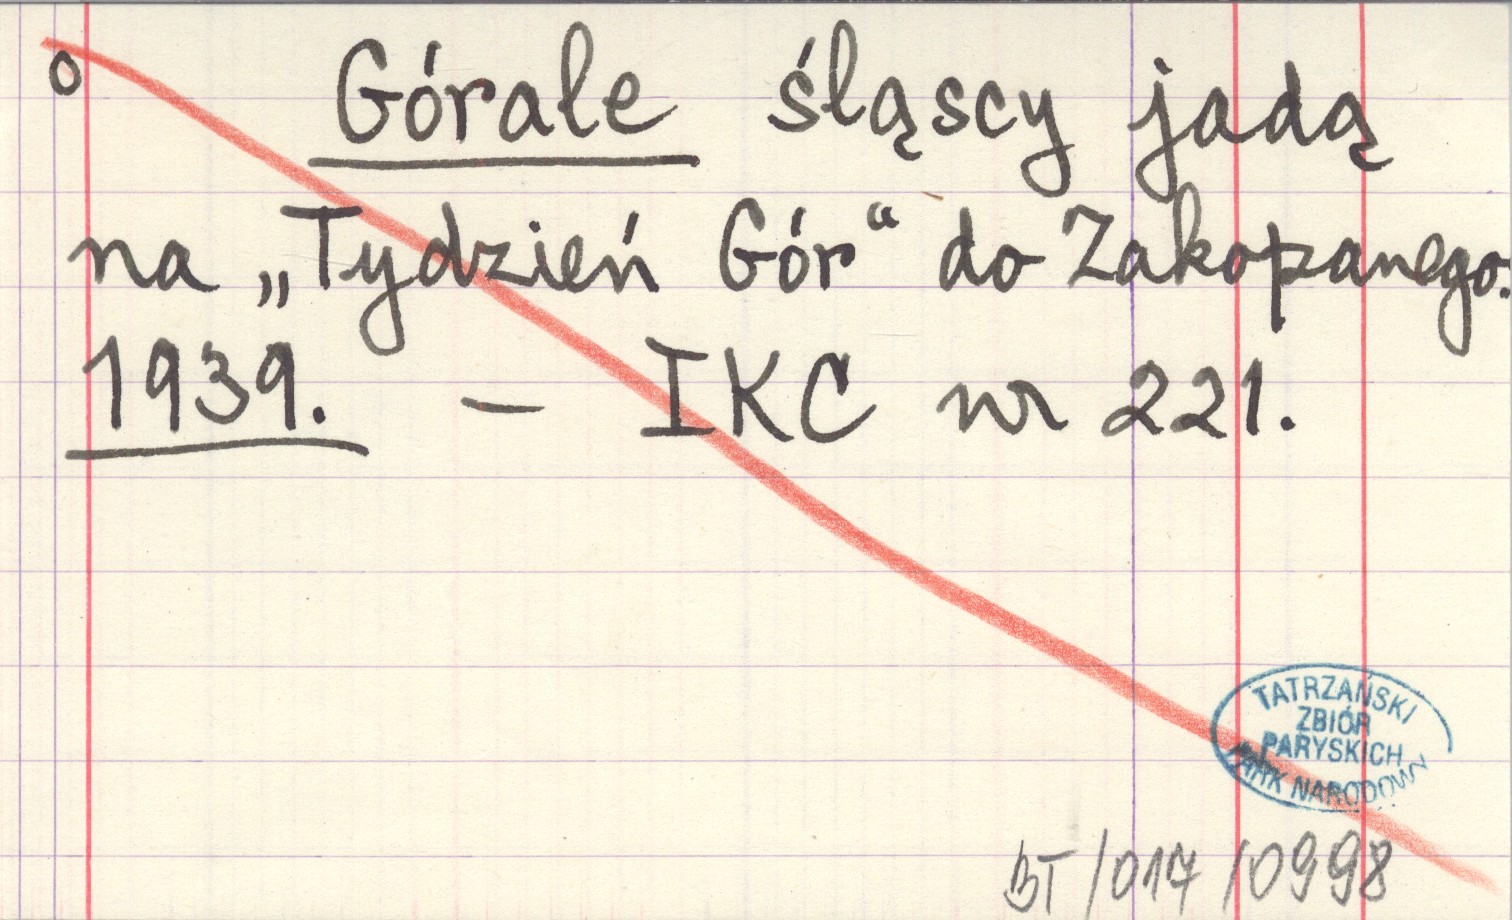 o Górale śląscy jadą
na „Tydzień Gór“ do Zakopanego.
1939. — IKC nr 221.
TATRZAŃSKI
ZBIÓR
PARYSKICH
PARK NARODOWY
BT/017/0998